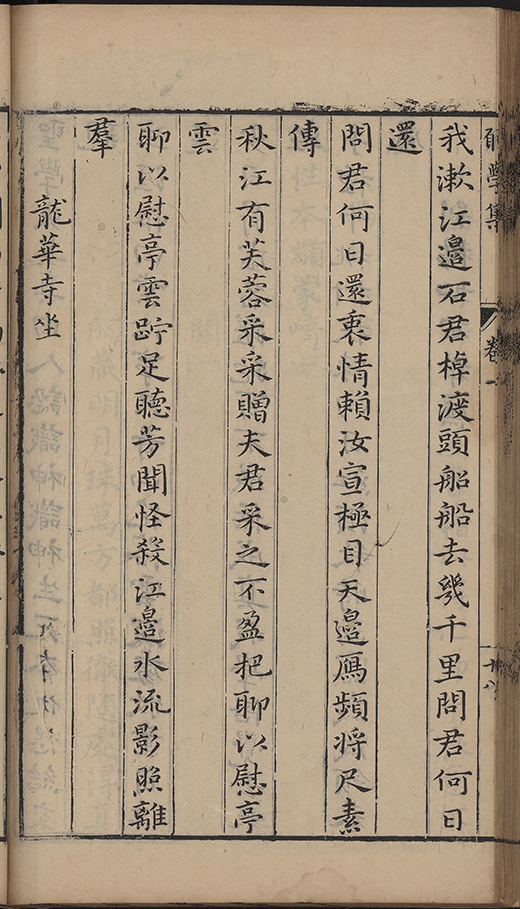 學集
卷一
我漱江邉石君棹渡頭船船去幾千里問君何日
還
問君何日還衷情賴汝宣極目天邉鴈頻將尺素
傳
秋江有芙蓉采采贈夫君采之不盈把聊以慰亭
雲
聊以慰亭雲竚足聽芳聞怪殺江邉水流影照離
羣
龍華寺坐